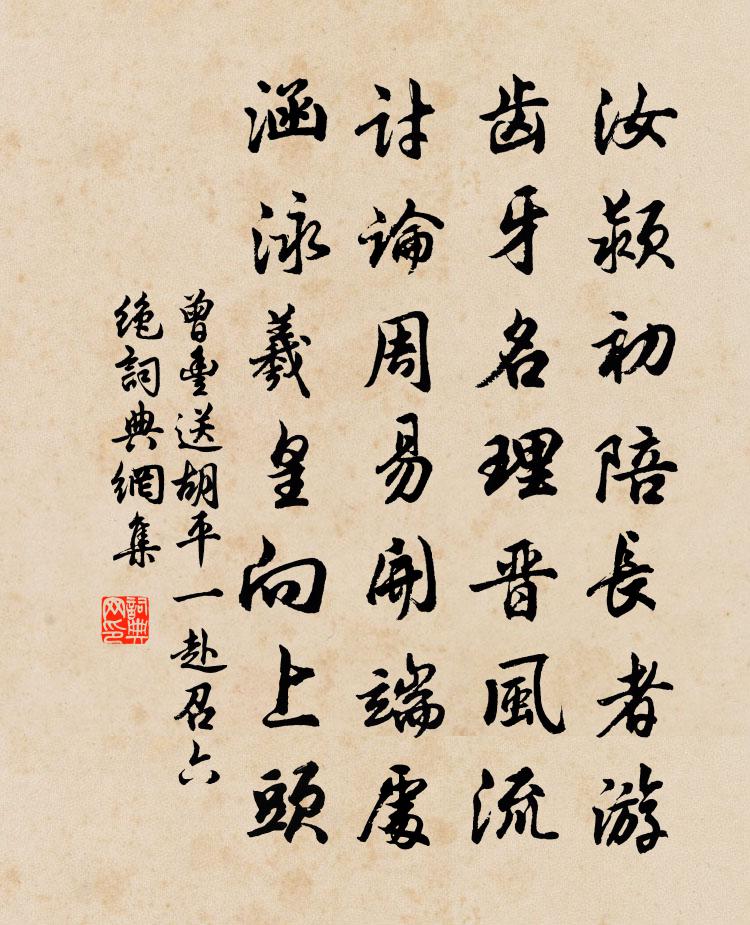 汝颍初陪長者游
齿牙名理晋風流
討論周易開端處
涵泳羲皇向上頭
曾豊送胡平一赴召六
绝詞典網集
詞典
网印